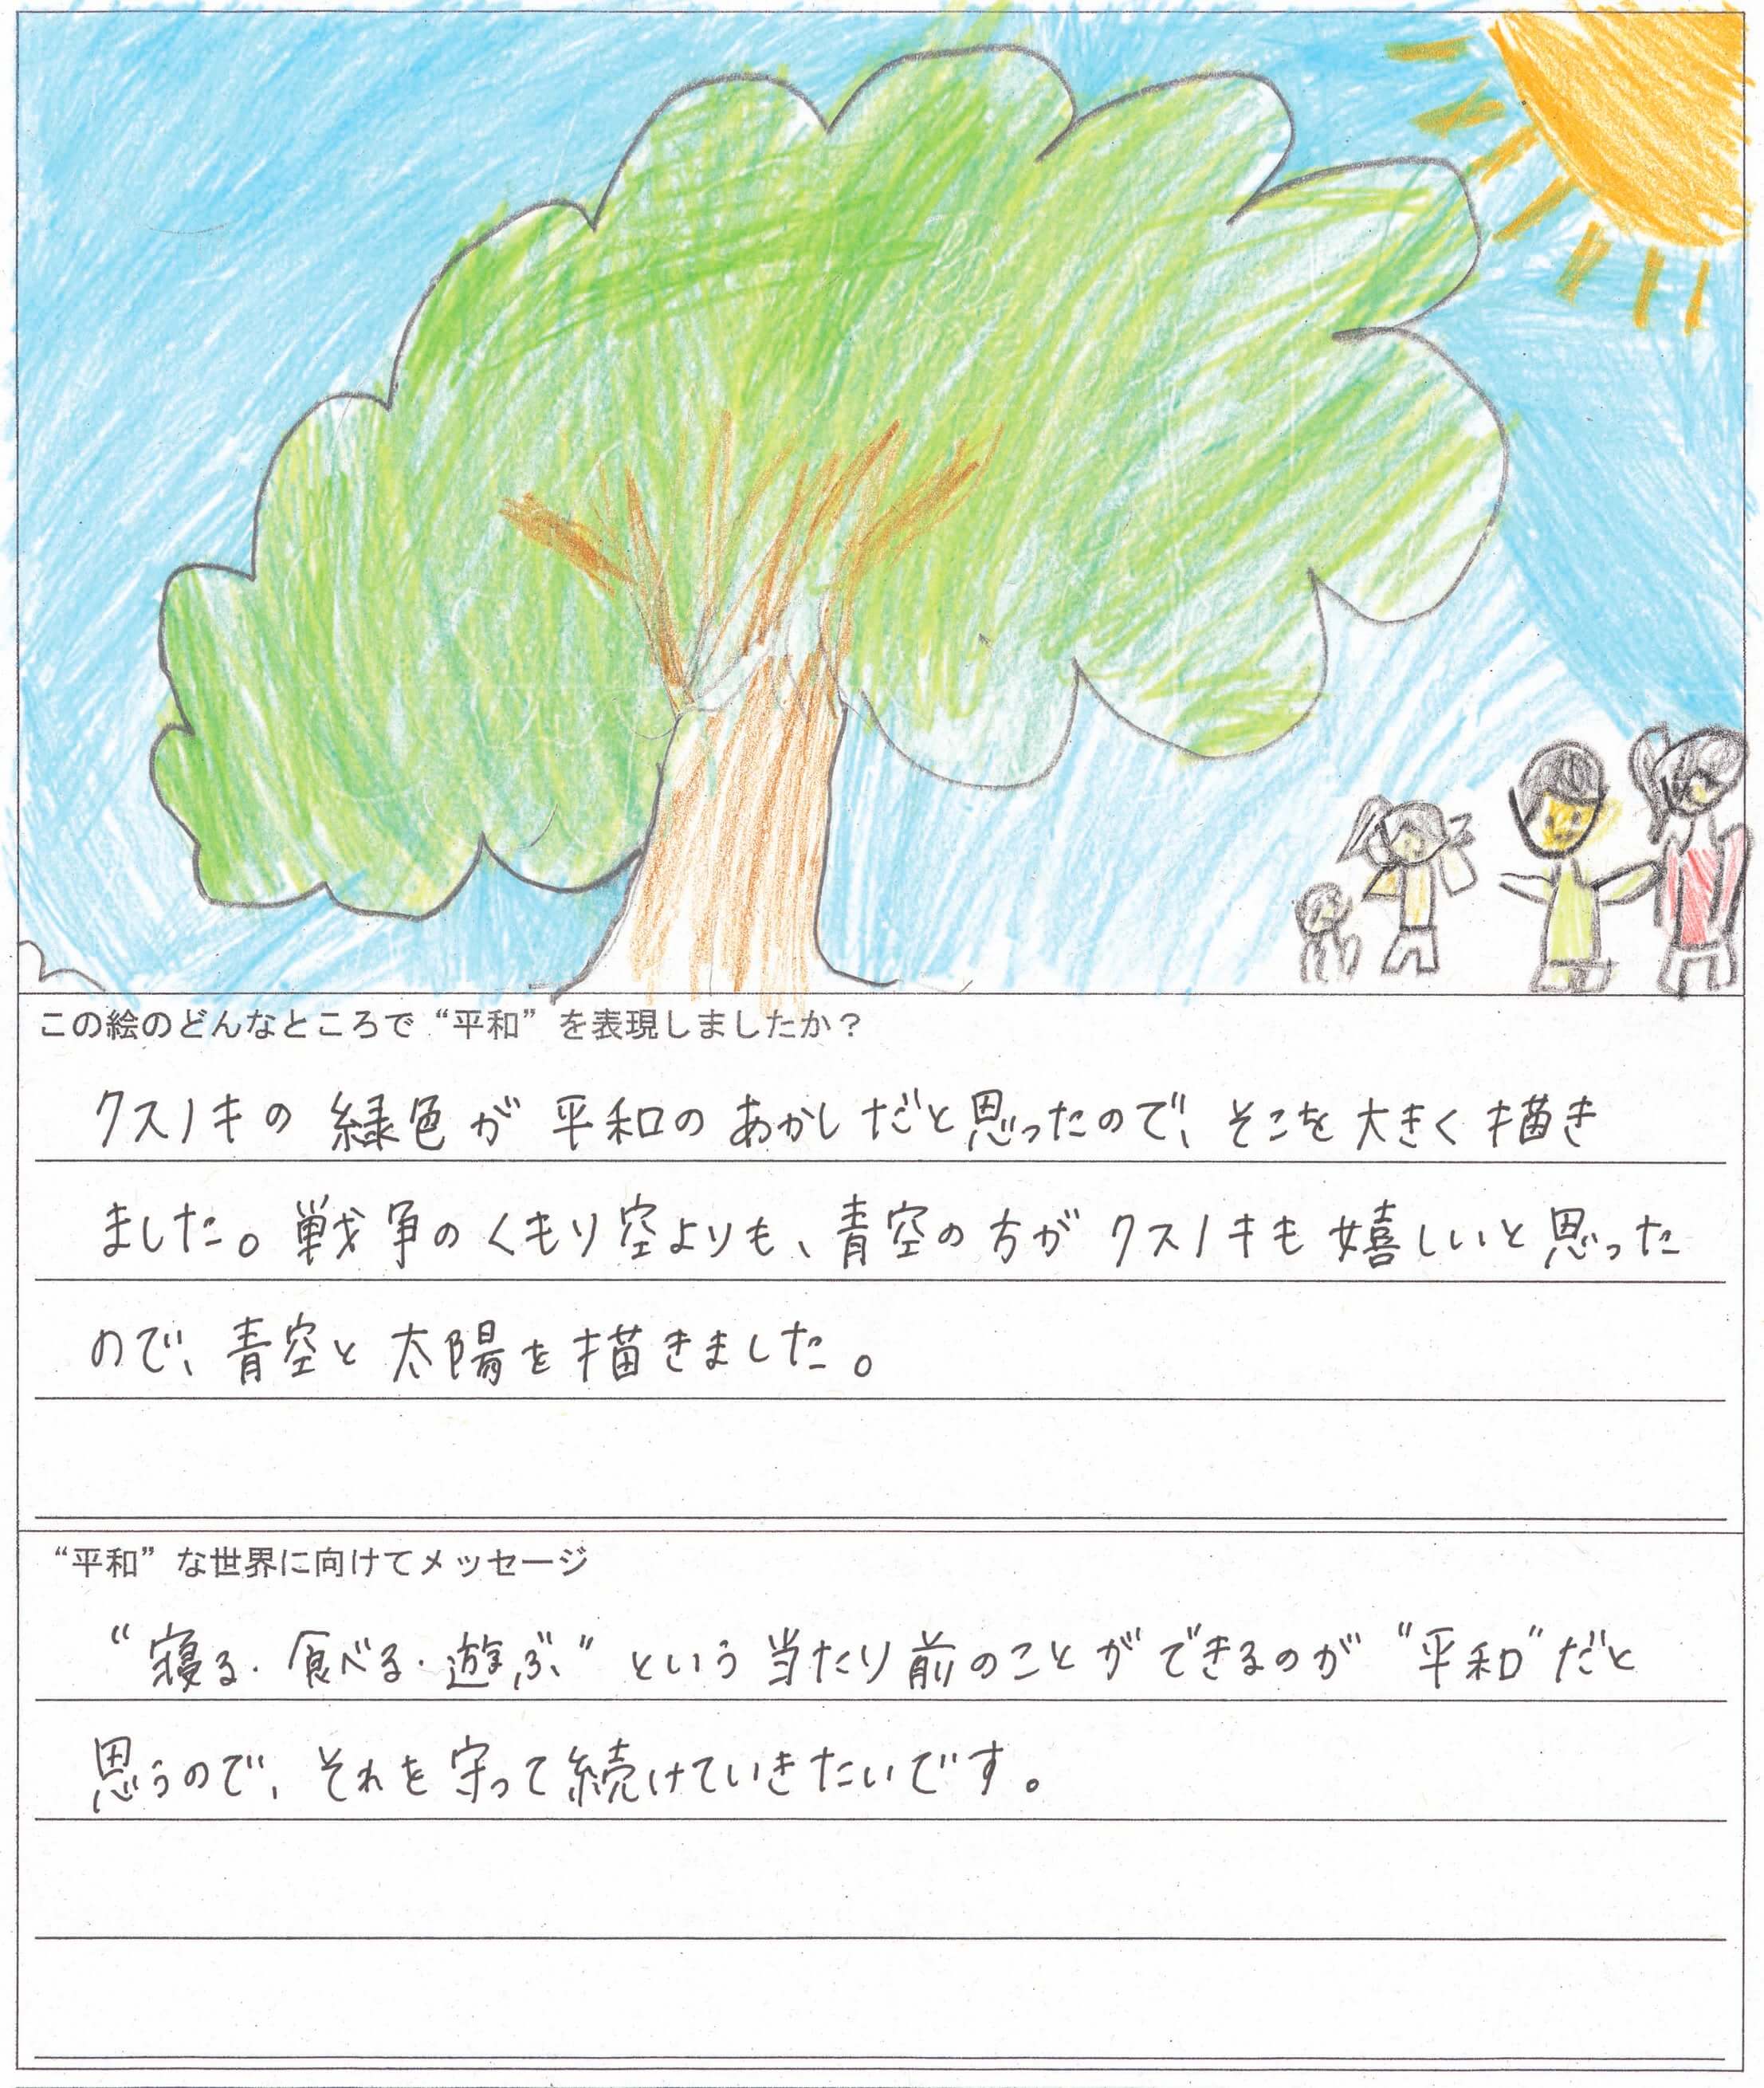 この絵のどんなところで“平和”を表現しましたか？
クスノキの緑色が平和のあかしだと思ったので、そこを大きく描き
ました。戦争のくもり空よりも、青空の方がクスノキも嬉しいと思った
ので、青空と太陽を描きました。
“平和”な世界に向けてメッセージ
“寝る・食べる・遊ぶ”という当たり前のことができるのが“平和”だと
思うので、それを守って続けていきたいです。